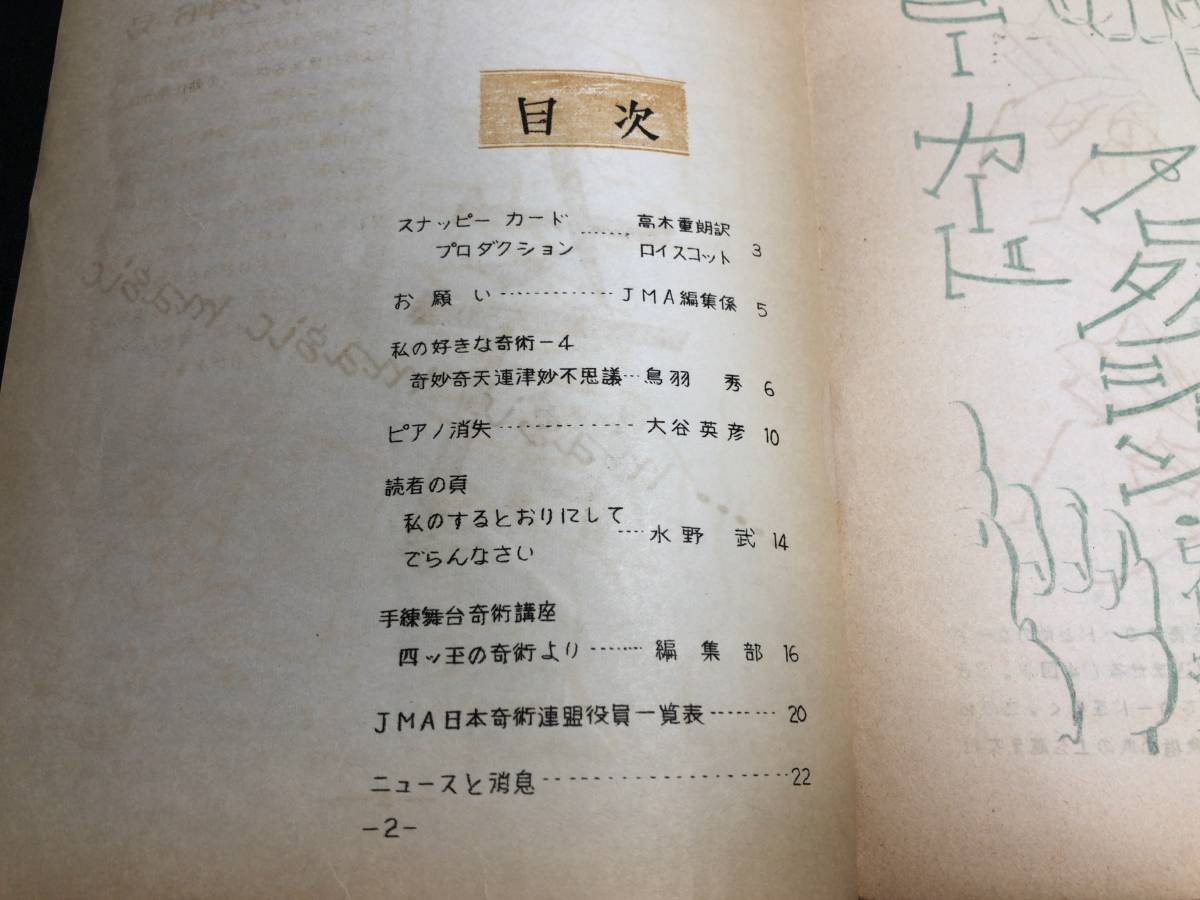 目次
スナッピー カード
プロダクション ‥‥‥ 高木重朗訳
ロイスコット 3
お願い ‥‥‥‥‥ JMA編集係 5
私の好きな奇術-4
奇妙奇天連津妙不思議 ‥‥ 鳥羽 秀 6
ピアノ消失 ‥‥‥‥‥ 大谷英彦 10
読者の頁
私のするとおりにして
でらんなさい ‥‥ 水野 武 14
手練舞台奇術講座
四ッ玉の奇術より ‥‥‥ 編集部 16
JMA日本奇術連盟役員一覧表 ‥‥‥ 20
ニュースと消息 ‥‥‥‥‥‥‥‥ 22
-2-
カード
プロダクション
magic magic